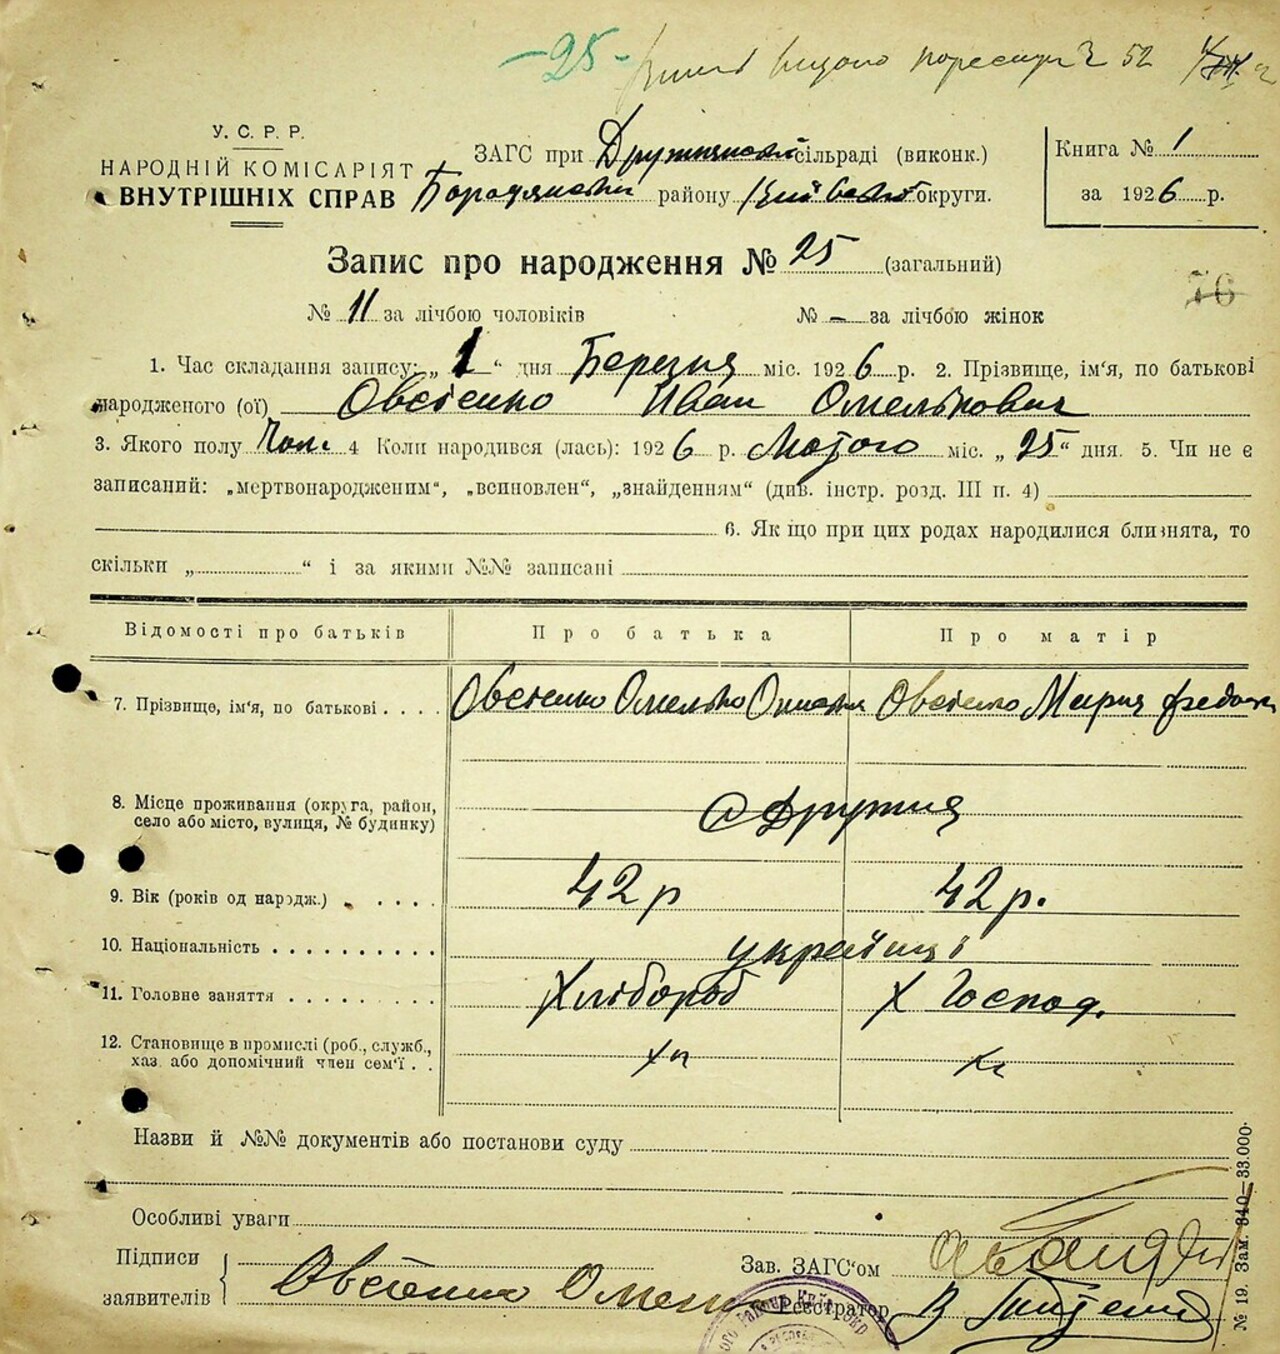 -25-
У. С. Р. Р.
НАРОДНІЙ КОМІСАРІЯТ
ВНУТРІШНІХ СПРАВ
ЗАГС при Дружнянській сільраді (виконк.)
Бородянського району Київської округи.
Книга № 1
за 1926 р.
Запис про народження № 25 (загальний)
76
№ 11 за лічбою чоловіків № - за лічбою жінок
1. Час складання запису: „ 1 “ дня Березня міс. 1926 р. 2. Прізвище, ім'я, по батькові
народженого (ої) Овсієнко Иван Омелькович
3. Якого полу Чол. 4 Коли народився (лась): 1926 р. Лютого міс. „ 25 “ дня. 5. Чи не є
записаний: „мертвонародженим“, „всиновлен“, „знайденням“ (див. інстр. розд. III п. 4)
6. Як що при цих родах народилися близнята, то
скільки „ “ і за якими №№ записані
Відомості про батьків Про батька Про матір
7. Прізвище, ім'я, по батькові . . . . Овсієнко Омелько Овсієнко Мария
8. Місце проживання (округа, район,
село або місто, вулиця, № будинку) с Дружня
9. Вік (років од народж.) . . . . . 42 р 42 р.
10. Національність . . . . . . . . . . українці
11. Головне заняття . . . . . . . . . Хлібороб х Господ.
12. Становище в промислі (роб., служб.,
хаз. або допомічний член сем'ї . . хп
Назви й №№ документів або постанови суду
Особливі уваги
Підписи
заявителів Овсієнко Омелько
Зав. ЗАГС'ом
Реєстратор В
№ 19. Зам. 340—33.000.